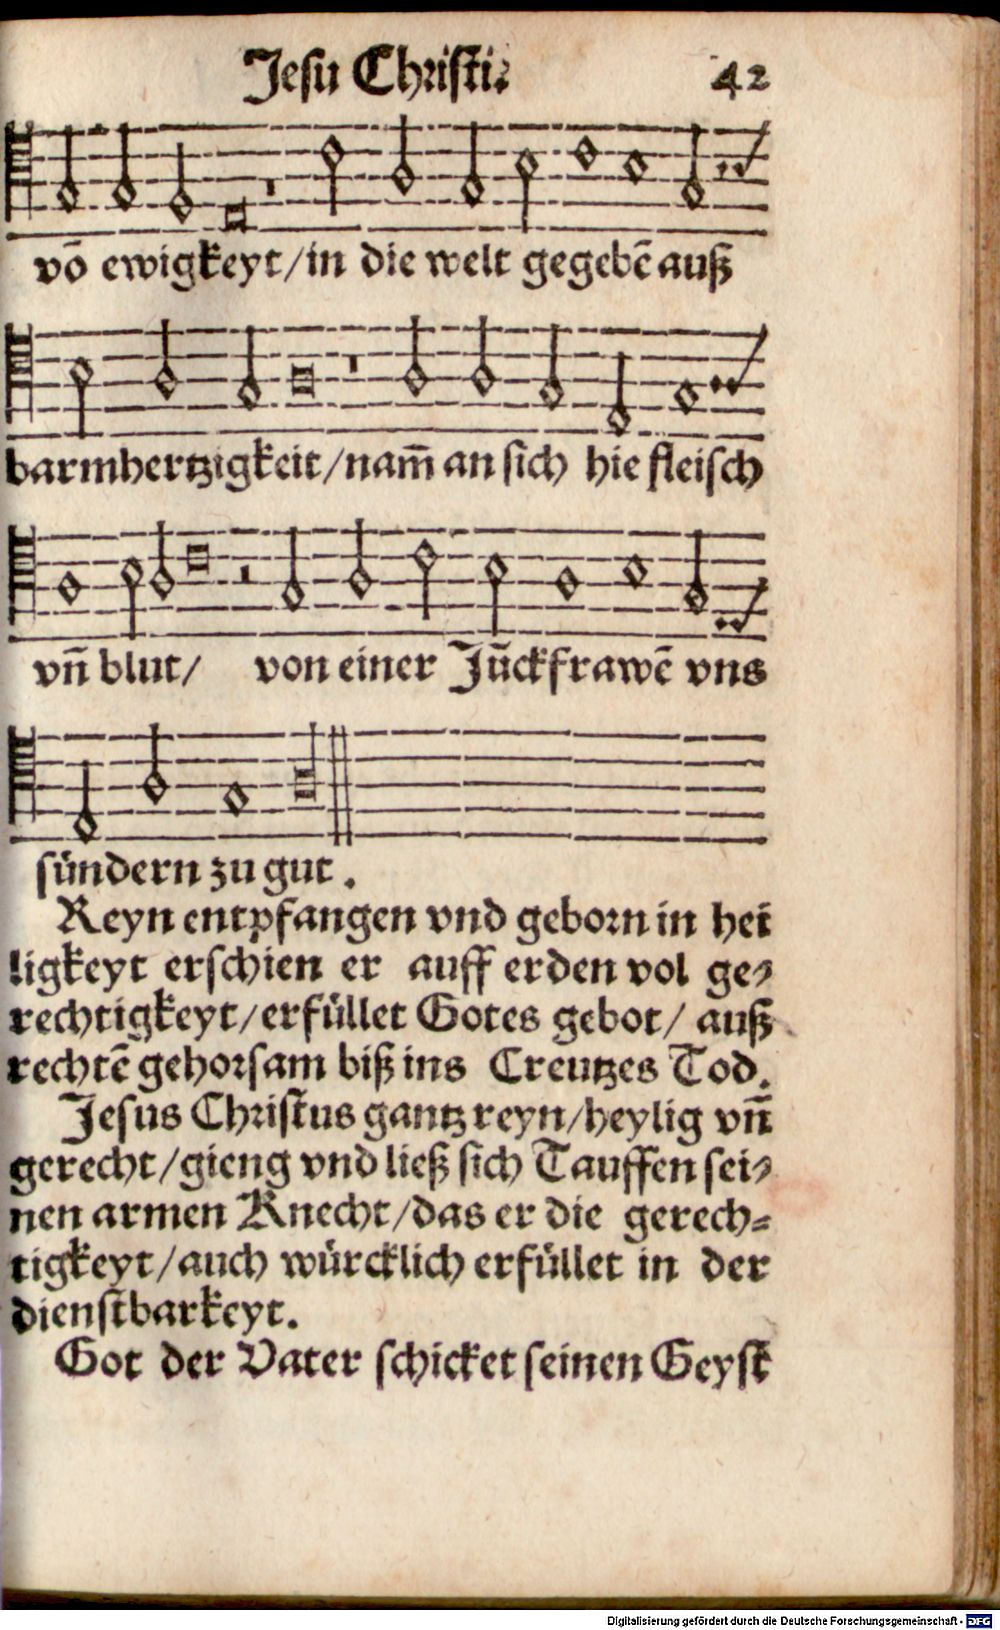 Jesu Christi. 42
vō ewigkeyt/in die welt gegebē auß
barmhertzigkeit/nam̄ an sich hie fleisch
vn̄ blut/ von einer Jūckfrawē vns
sündern zu gut.
Reyn entpfangen vnd geborn in hei
ligkeyt erschien er auff erden vol ge-
rechtigkeyt/erfüllet Gotes gebot/ auß
rechtē gehorsam biß ins Creutzes Tod.
Jesus Christus gantz reyn/heylig vn̄
gerecht/gieng vnd ließ sich Tauffen sei-
nen armen Knecht/das er die gerech-
tigkeyt/auch würcklich erfüllet in der
dienstbarkeyt.
Got der Vater schicket seinen Geyst
Digitalisierung gefördert durch die Deutsche Forschungsgemeinschaft - DFG